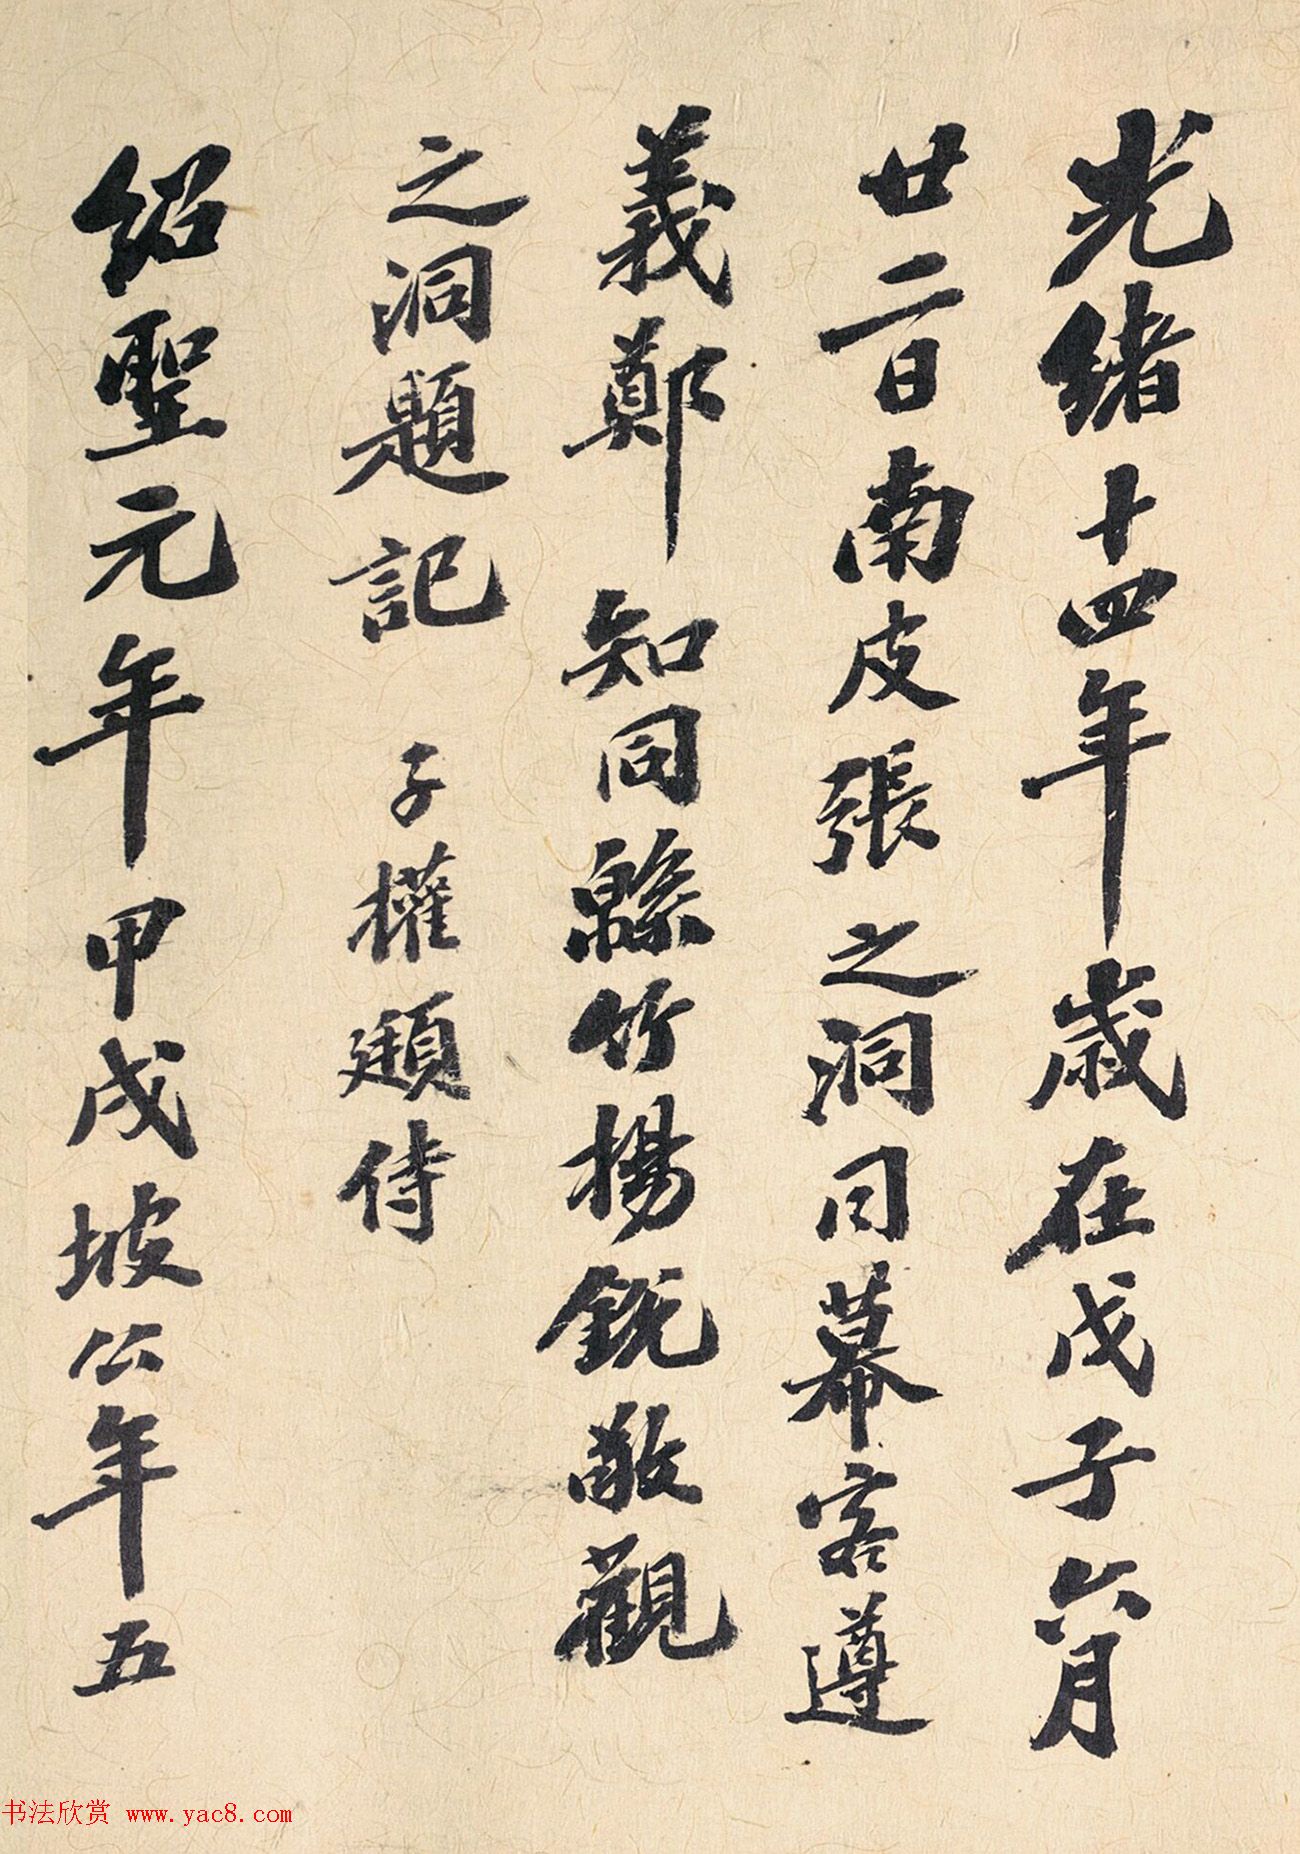 光緒十四年歲在戊子六月
廿二日南皮張之洞同幕客遵
義鄭知同緜竹楊銳敬觀
之洞題記 子權頲侍
紹聖元年甲戌坡公年五
书法欣赏 www.yac8.com